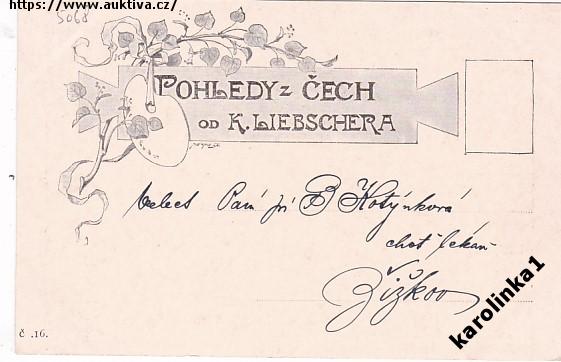 https://www.auktiva.cz/
5068
POHLEDY Z ČECH
OD K. LIEBSCHERA
Paní B Kotýnková
choť lékaře
Žižkov
č. 16.
karolinka1